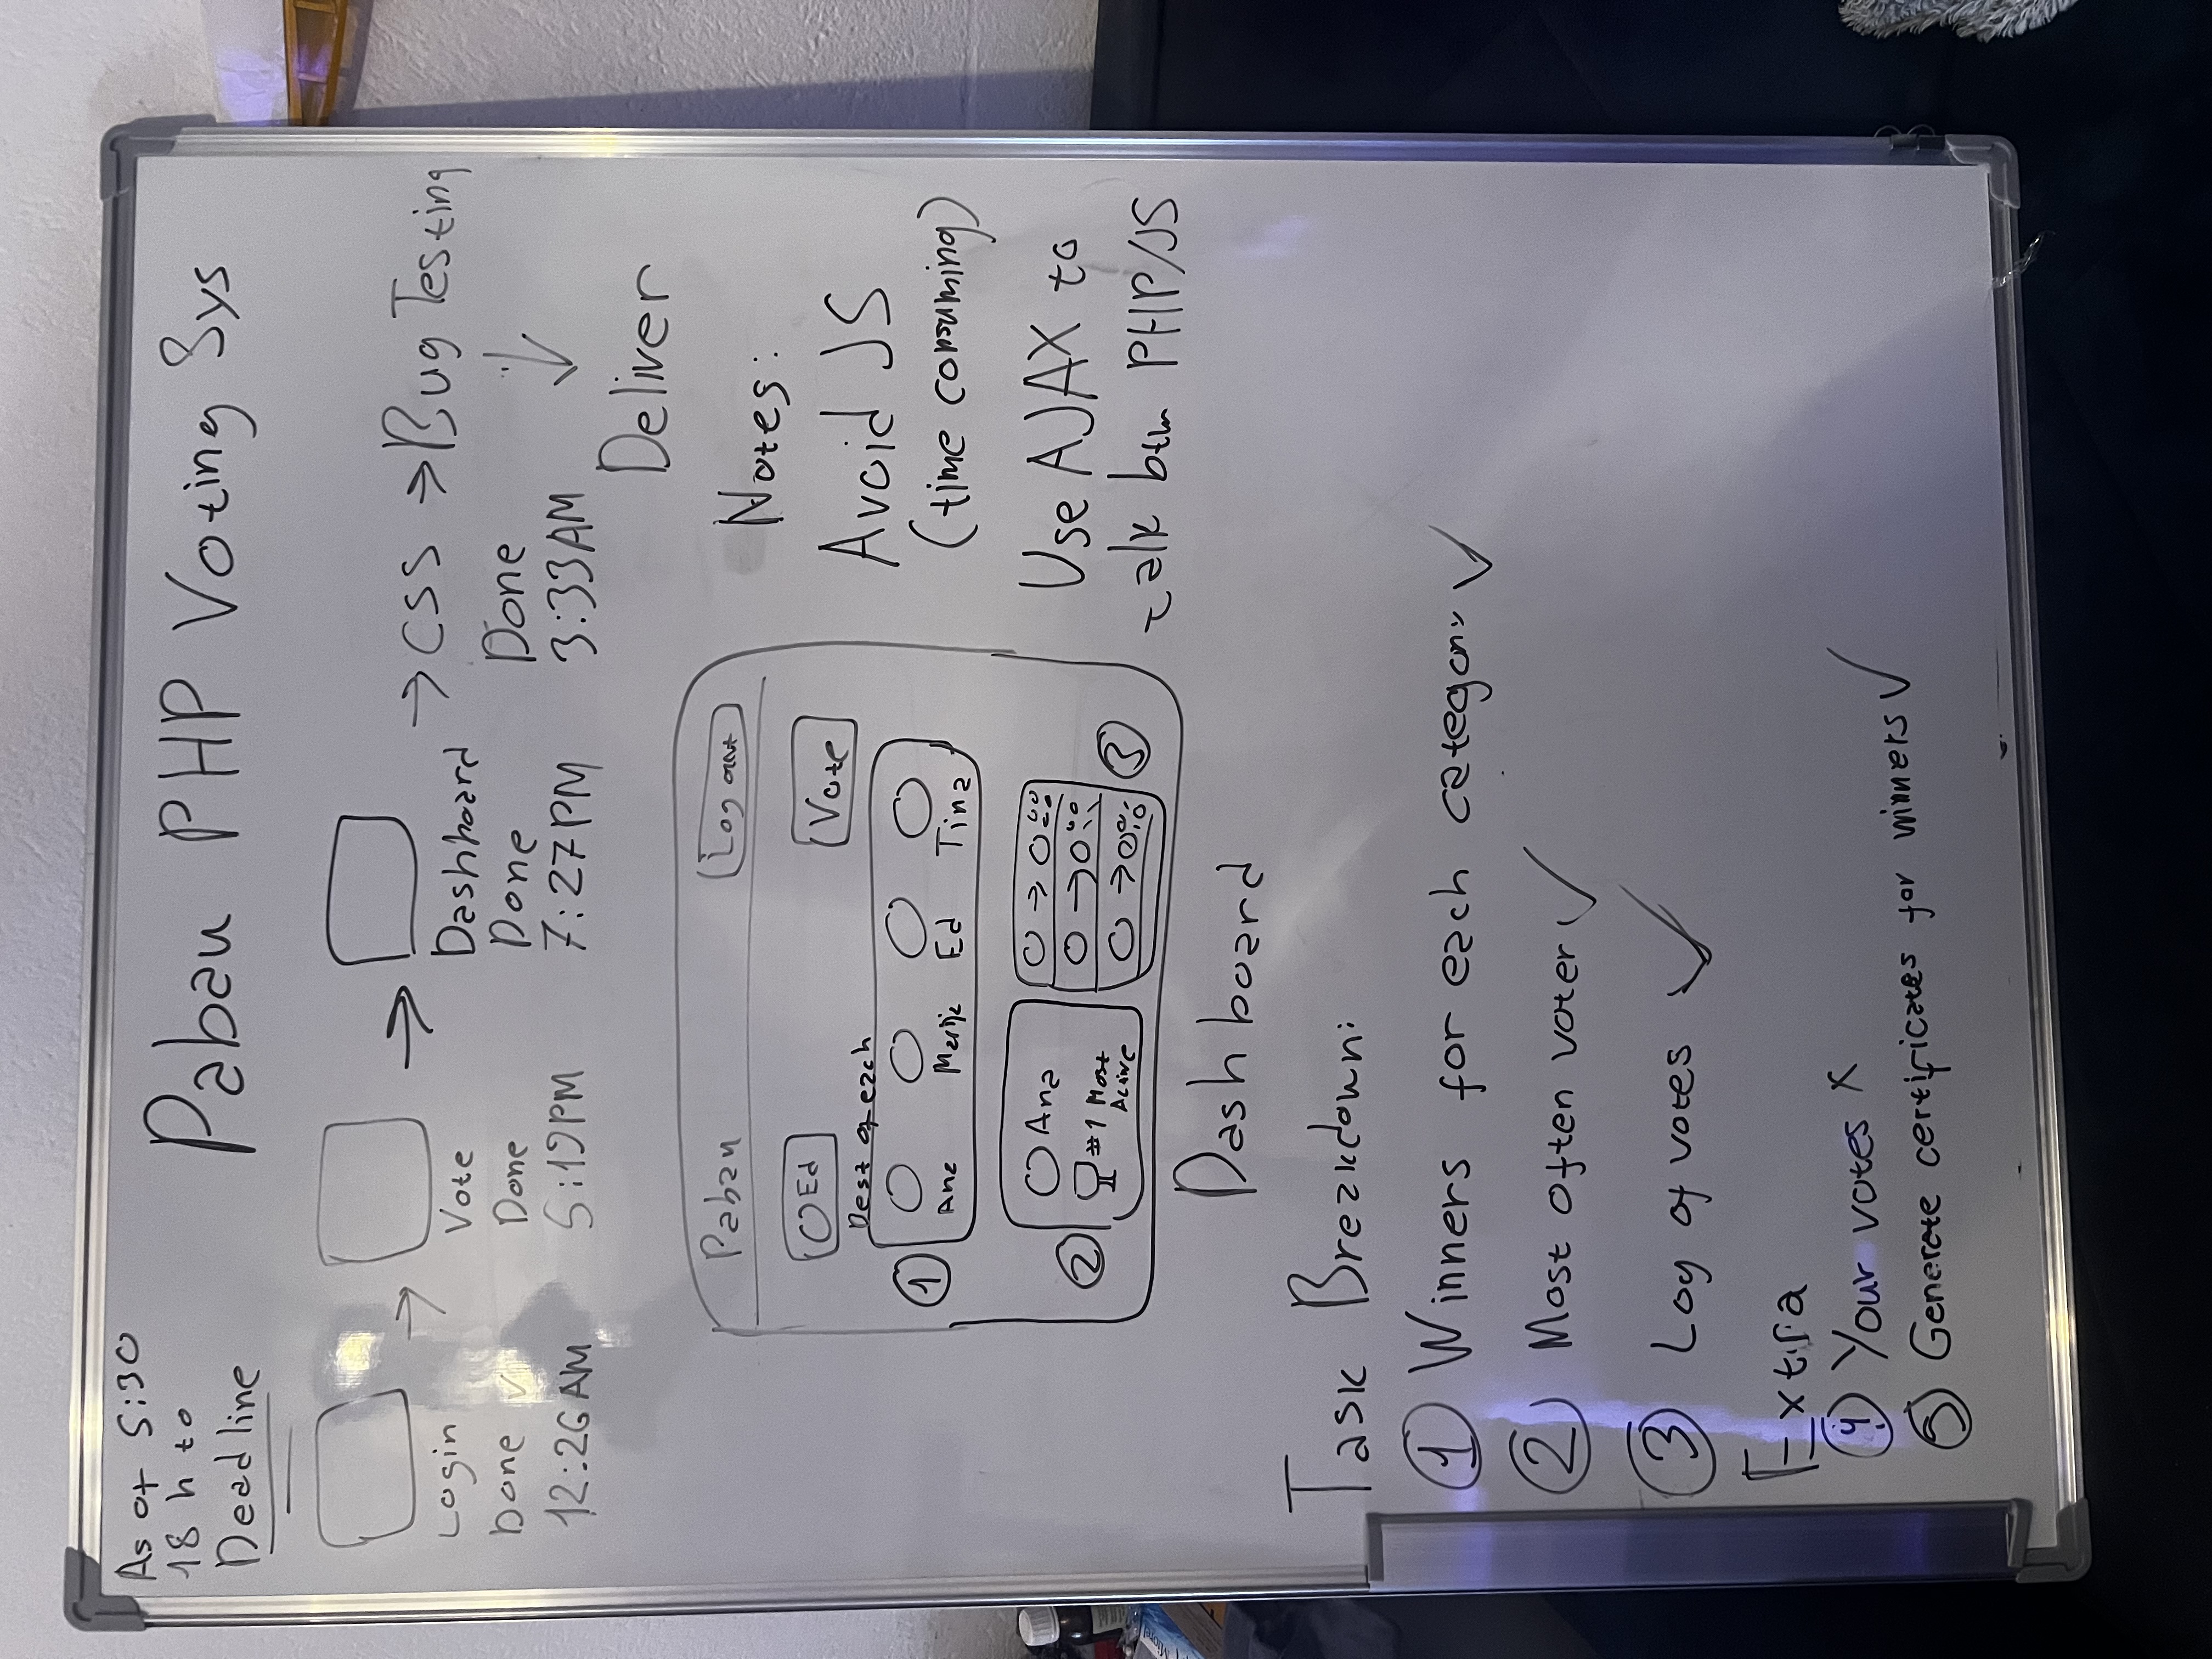 As of 5:30
18 h to
Deadline
Pabau PHP Voting Sys
Login
Done ✓
12:26 AM
Vote
Done
5:19PM
Dashboard
Done
7:27PM
→ CSS
Done
3:33AM
→ Bug Testing
Deliver
Pabau
Log out
Ed
Vote
Best of each
1
Ana
Marija
Ed
Tina
2
Ana
#1 Most
Active
3
Dashboard
Notes:
Avoid JS
(time consuming)
Use AJAX to
talk btw PHP/JS
Task Breakdown:
1 Winners for each category ✓
2 Most often voter ✓
3 Log of votes ✓
Extra
4 Your votes x
5 Generate certificates for winners ✓